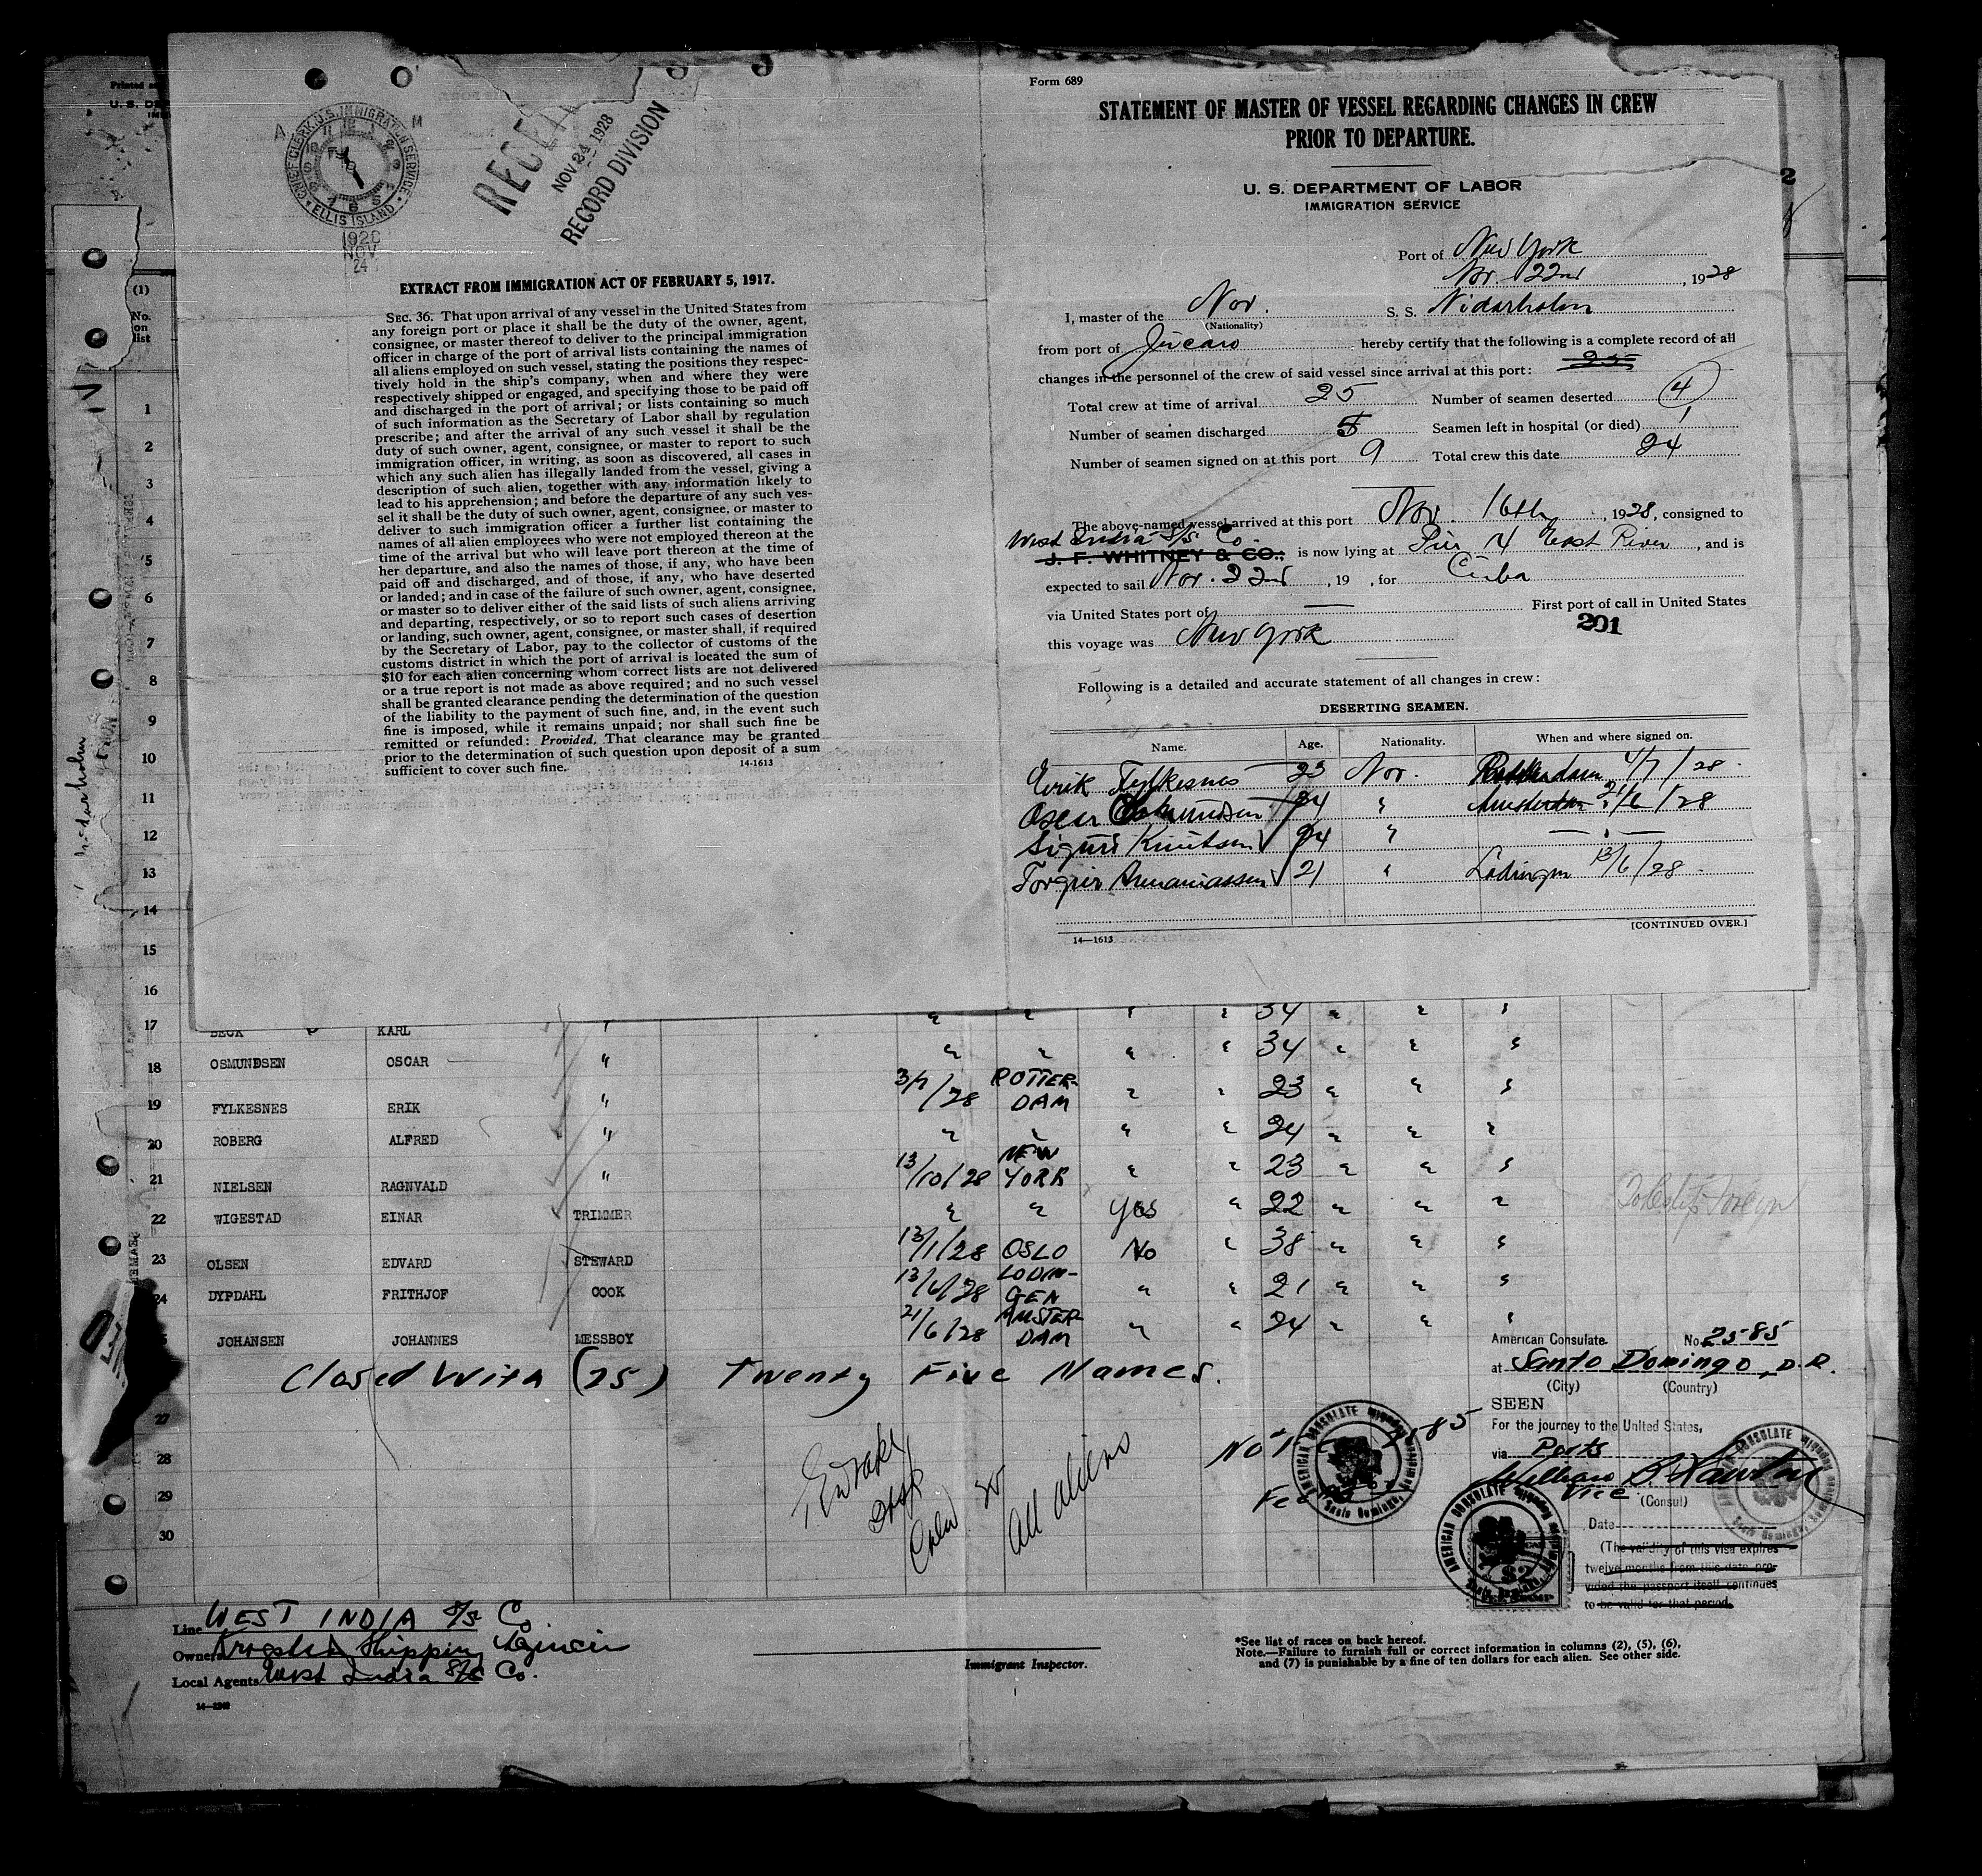 CHIEF CLERK, U.S. IMMIGRATION SERVICE
ELLIS ISLAND
1928
NOV
24
NOV 24 1928
RECORD DIVISION
EXTRACT FROM IMMIGRATION ACT OF FEBRUARY 5, 1917.
SEC. 36. That upon arrival of any vessel in the United States from
any foreign port or place it shall be the duty of the owner, agent,
consignee, or master thereof to deliver to the principal immigration
officer in charge of the port of arrival lists containing the names of
all aliens employed on such vessel, stating the positions they respec-
tively hold in the ship's company, when and where they were
respectively shipped or engaged, and specifying those to be paid off
and discharged in the port of arrival; or lists containing so much
of such information as the Secretary of Labor shall by regulation
prescribe; and after the arrival of any such vessel it shall be the
duty of such owner, agent, consignee, or master to report to such
immigration officer, in writing, as soon as discovered, all cases in
which any such alien has illegally landed from the vessel, giving a
description of such alien, together with any information likely to
lead to his apprehension; and before the departure of any such ves-
sel it shall be the duty of such owner, agent, consignee, or master to
deliver to such immigration officer a further list containing the
names of all alien employees who were not employed thereon at the
time of the arrival but who will leave port thereon at the time of
her departure, and also the names of those, if any, who have been
paid off and discharged, and of those, if any, who have deserted
or landed; and in case of the failure of such owner, agent, consignee,
or master so to deliver either of the said lists of such aliens arriving
and departing, respectively, or so to report such cases of desertion
or landing, such owner, agent, consignee, or master shall, if required
by the Secretary of Labor, pay to the collector of customs of the
customs district in which the port of arrival is located the sum of
$10 for each alien concerning whom correct lists are not delivered
or a true report is not made as above required; and no such vessel
shall be granted clearance pending the determination of the question
of the liability to the payment of such fine, and, in the event such
fine is imposed, while it remains unpaid; nor shall such fine be
remitted or refunded: Provided, That clearance may be granted
prior to the determination of such question upon deposit of a sum
sufficient to cover such fine.
14-1613
Form 689
STATEMENT OF MASTER OF VESSEL REGARDING CHANGES IN CREW
PRIOR TO DEPARTURE.
U. S. DEPARTMENT OF LABOR
IMMIGRATION SERVICE
Port of New York
Nov. 22nd, 1928
I, master of the Nor. S. S. Nidarholm
(Nationality)
from port of Jucaro hereby certify that the following is a complete record of all
changes in the personnel of the crew of said vessel since arrival at this port: 25
Total crew at time of arrival 25 Number of seamen deserted 4
Number of seamen discharged 5 Seamen left in hospital (or died) 1
Number of seamen signed on at this port 9 Total crew this date 24
The above-named vessel arrived at this port Nov. 16th, 1928, consigned to
West India S/S Co.
J. F. WHITNEY & CO., is now lying at Pier 4 East River, and is
expected to sail Nov. 22nd, 19 , for Cuba
via United States port of — First port of call in United States
201
this voyage was New York
Following is a detailed and accurate statement of all changes in crew:
DESERTING SEAMEN.
Name. Age. Nationality. When and where signed on.
Erik Fylkesnes 23 Nor. Rotterdam 4/7/28
Oscar Osmundsen 34 " Amsterdam 21/6/28
Sigurd Knutsen 24 " — " —
Torgeir Ananiassen 21 " Lodingen 13/6/28
[CONTINUED OVER.]
14—1613
(1)
No.
on
list
1
2
3
4
5
6
7
8
9
10
11
12
13
14
15
16
" " " " 34 " " "
17 BECK KARL " " " " " 34 " " "
18 OSMUNDSEN OSCAR " 3/7/28 ROTTERDAM " " 23 " " "
19 FYLKESNES ERIK " " " " " 24 " " "
20 ROBERG ALFRED " 13/10/28 NEW YORK " " 23 " " "
21 NIELSEN RAGNVALD " " " Yes " 22 " " "
22 WIGESTAD EINAR TRIMMER 13/1/28 OSLO No " 38 " " "
23 OLSEN EDVARD STEWARD 13/6/28 LODINGEN " " 21 " " "
24 DYPDAHL FRITHJOF COOK 21/6/28 AMSTERDAM " " 24 " " "
JOHANSEN JOHANNES MESSBOY
Closed With (25) Twenty Five Names.
27
28
29
30
All aliens
American Consulate. No. 2585
at Santo Domingo, D.R.
(City) (Country)
SEEN
For the journey to the United States,
via Ports
William
Vice (Consul)
Date
(The validity of this visa expires
twelve months from this date pro-
vided the passport itself continues
to be valid for that period.
No 2585
AMERICAN CONSULATE
Santo Domingo
$2
Line WEST INDIA S/S Co
Owners Shipping
Local Agents West India S/S Co.
Immigrant Inspector.
*See list of races on back hereof.
Note.—Failure to furnish full or correct information in columns (2), (5), (6),
and (7) is punishable by a fine of ten dollars for each alien. See other side.